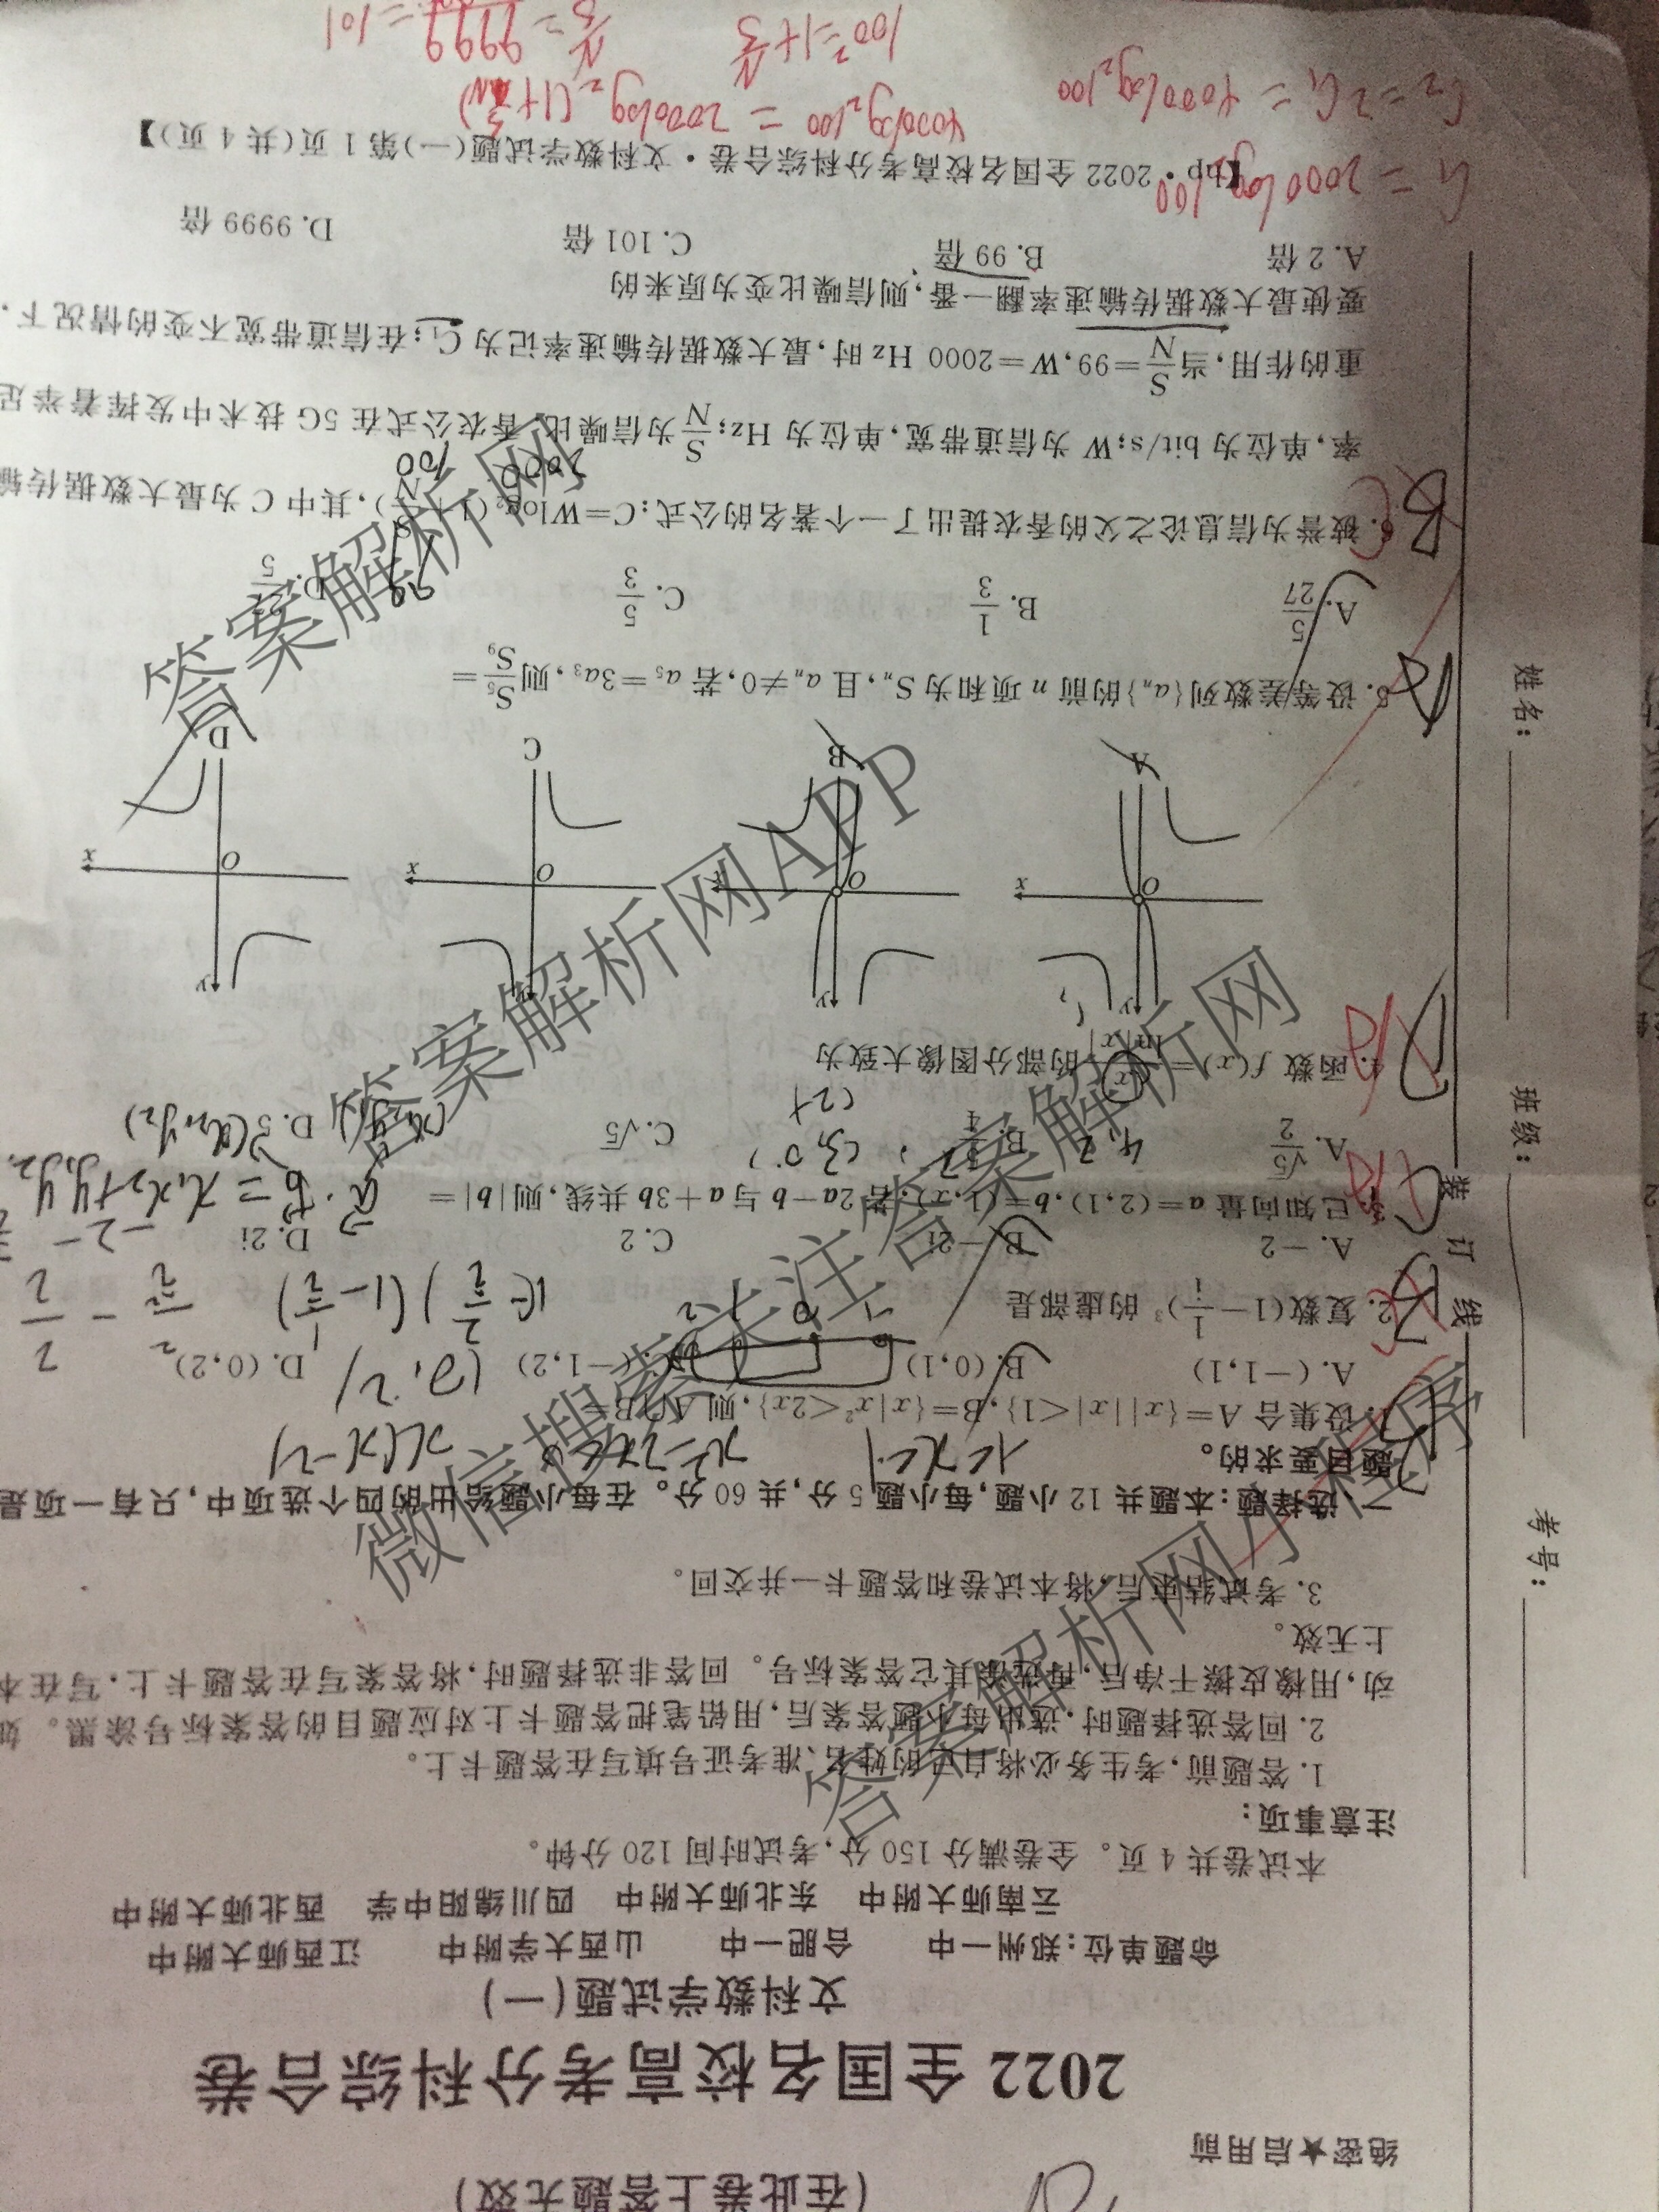 (在此卷上答题无效)
绝密★启用前
2022 全国名校高考分科综合卷
文科数学试题(一)
命题单位:郑州一中 合肥一中 山西大学附中 江西师大附中
云南师大附中 东北师大附中 四川绵阳中学 西北师大附中
本试卷共 4 页。全卷满分 150 分,考试时间 120 分钟。
注意事项:
1. 答题前,考生务必将自己的姓名、准考证号填写在答题卡上。
2. 回答选择题时,选出每小题答案后,用铅笔把答题卡上对应题目的答案标号涂黑。如
动,用橡皮擦干净后,再选涂其它答案标号。回答非选择题时,将答案写在答题卡上.写在本
上无效。
3. 考试结束后,将本试卷和答题卡一并交回。
一、选择题:本题共 12 小题,每小题 5 分,共 60 分。在每小题给出的四个选项中,只有一项是
题目要求的。
x²-2x<0 x(x-2)
1. 设集合 A={x||x|<1},B={x|x²<2x},则 A∩B=
A. (-1,1) B. (0,1) C. (-1,2) D. (0,2)
(0,2)
2. 复数(1-1/i)³ 的虚部是
A. -2 B. -2i C. 2 D. 2i
3. 已知向量 a=(2,1),b=(1,x),若 2a-b 与 a+3b 共线,则|b|=
a·b = x₁x₂+y₁y₂
A. √5/2 B. 5/4 C. √5 D. 5
4. 函数 f(x)=x/ln|x|的部分图像大致为
y y y y
O x O x O x O x
A B C D
5. 设等差数列{aₙ}的前 n 项和为 Sₙ,且 aₙ≠0,若 a₅=3a₃,则S₅/S₉=
A. 5/27 B. 1/3 C. 5/3 D. 27/5
99
6. 被誉为信息论之父的香农提出了一个著名的公式:C=Wlog₂(1+S/N),其中 C 为最大数据传输
2000 100
率,单位为 bit/s;W 为信道带宽,单位为 Hz;S/N为信噪比.香农公式在 5G 技术中发挥着举足
重的作用,当S/N=99,W=2000 Hz 时,最大数据传输速率记为 C₁;在信道带宽不变的情况下.
要使最大数据传输速率翻一番,则信噪比变为原来的
A. 2 倍 B. 99 倍 C. 101 倍 D. 9999 倍
C₁ = 2000log₂100
·2022 全国名校高考分科综合卷·文科数学试题(一)第 1 页(共 4 页)】
C₂=2C₁ = 4000log₂100
4000log₂100 = 2000log₂(1+S/N)
100²=1+S/N
S/N=9999
=101
考号:
班级:
姓名:
装
订
线
微信搜索关注答案解析网
答案解析网小程序
答案解析网APP
答案解析网